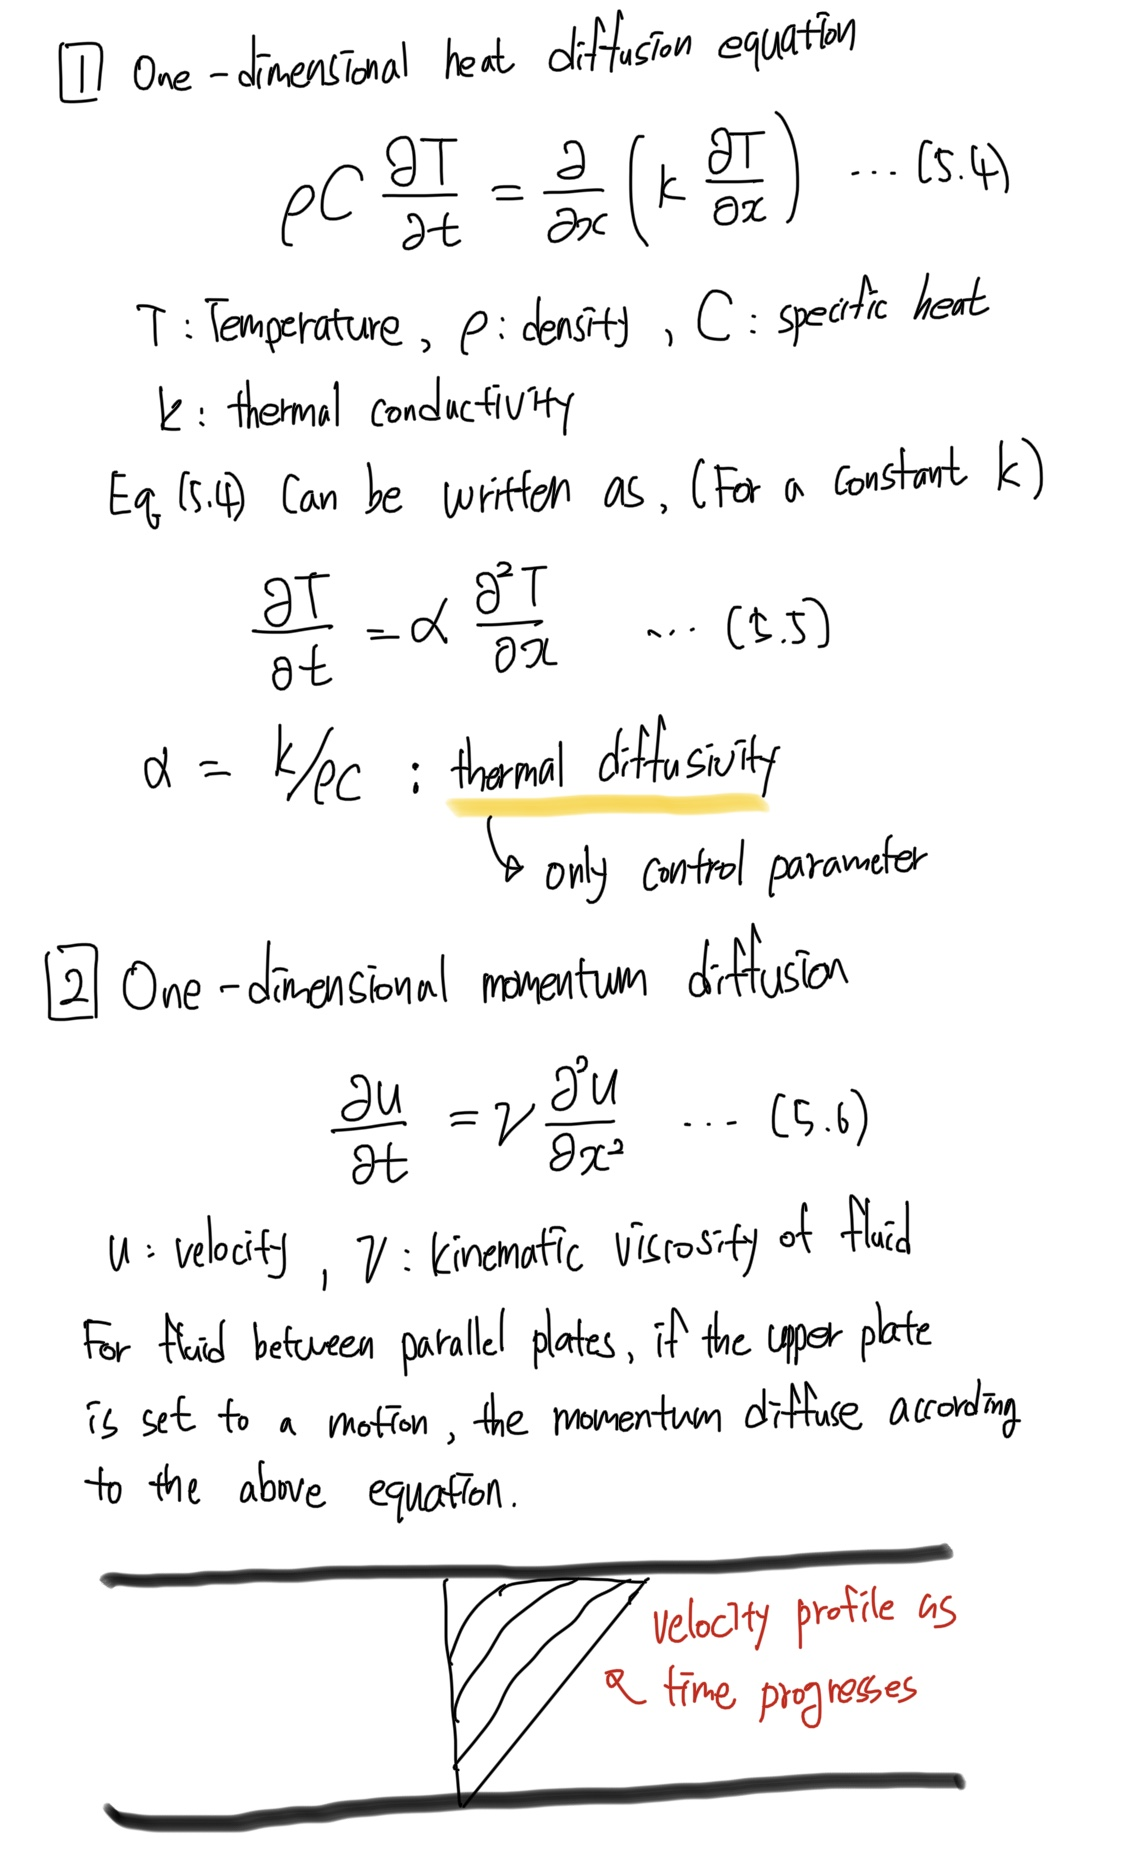 1 One-dimensional heat diffusion equation
ρC ∂T/∂t = ∂/∂x (k ∂T/∂x) ... (5.4)
T : Temperature, ρ : density, C : specific heat
k : thermal conductivity
Eq (5.4) can be written as, (For a constant k)
∂T/∂t = α ∂²T/∂x ... (5.5)
α = k/ρC : thermal diffusivity
only control parameter
2 One-dimensional momentum diffusion
∂u/∂t = ν ∂²u/∂x² ... (5.6)
u : velocity, ν : kinematic viscosity of fluid
For fluid between parallel plates, if the upper plate
is set to a motion, the momentum diffuse according
to the above equation.
velocity profile as
time progresses